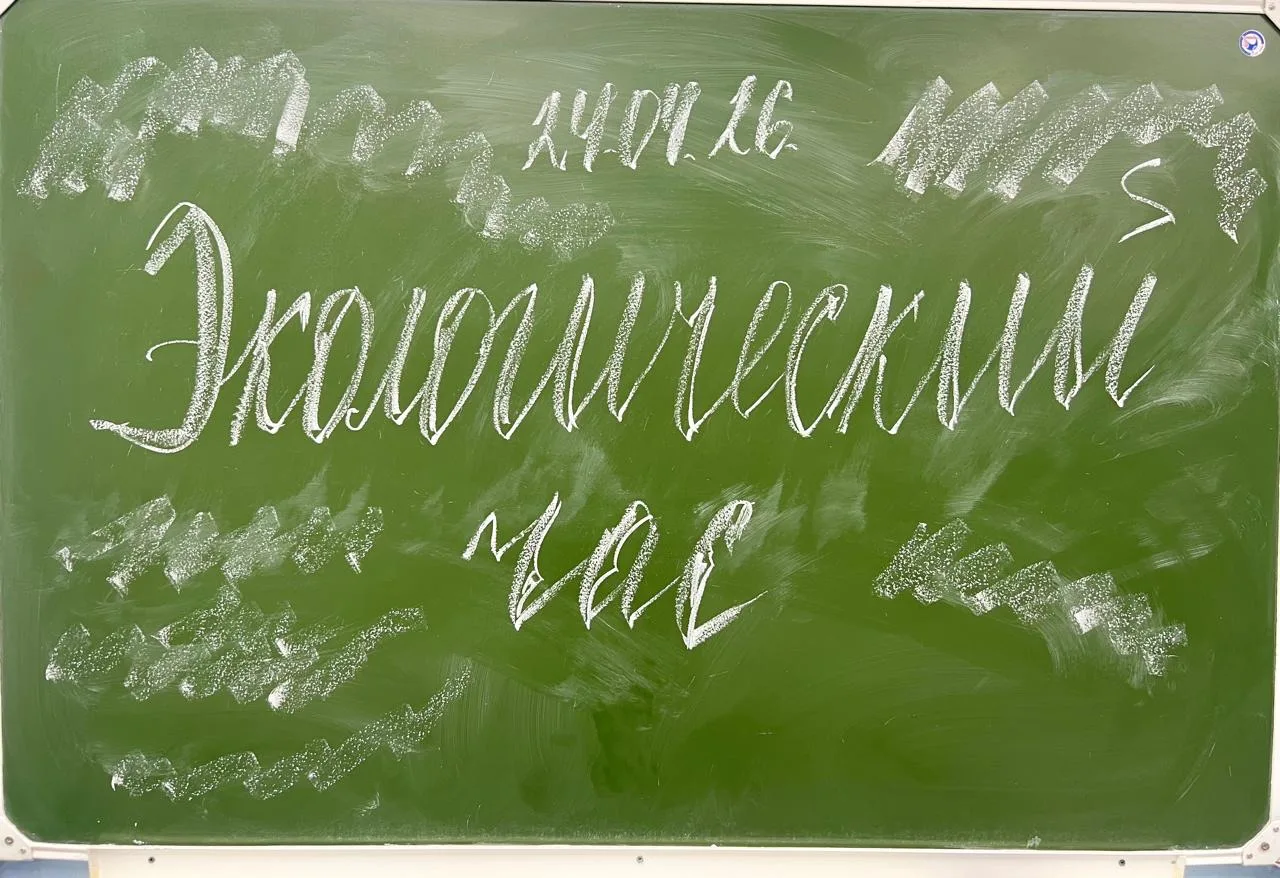 24.04.26.
Экологический
час